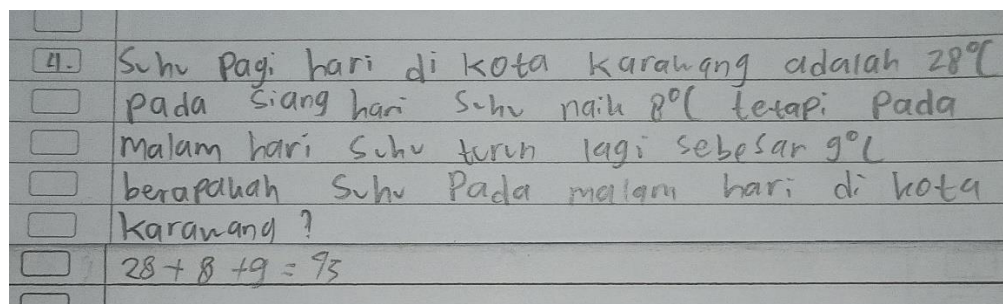 4. Suhu Pagi hari di kota Karawang adalah 28°C
pada siang hari suhu naik 8°C tetapi Pada
malam hari suhu turun lagi sebesar 9°C
berapakah suhu Pada malam hari di kota
Karawang ?
28 + 8 + 9 = 45